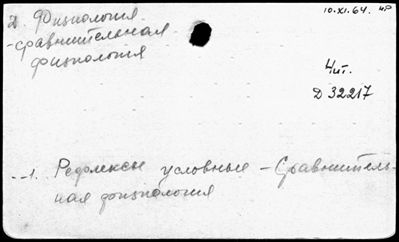 10.XI.64. НР
2. Физиология
-сравнительная
физиология
Чит.
Д 32217
--1. Рефлексы условные - Сравнитель-
ная физиология